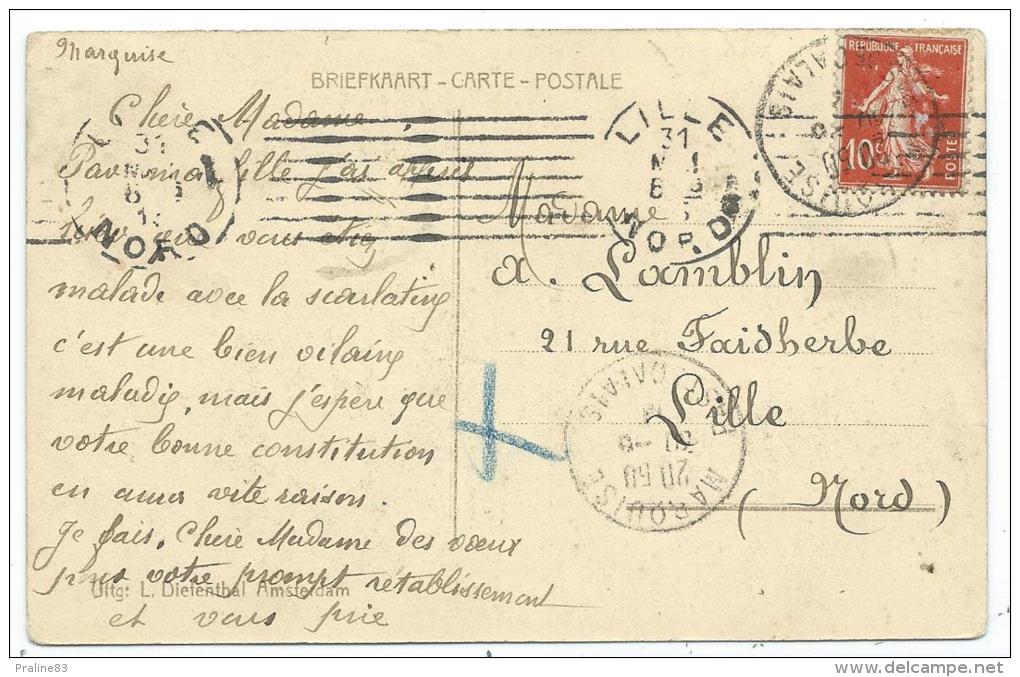 Marquise
BRIEFKAART - CARTE - POSTALE
REPUBLIQUE FRANÇAISE
10c
POSTES
Chère Madame,
Par ma fille j'ai appris
que vous étiez
malade avec la scarlatine
c'est une bien vilaine
maladie, mais j'espère que
votre bonne constitution
en aura vite raison.
Je fais, Chère Madame des vœux
pour votre prompt rétablissement
et vous prie
Uitg: L. Diefenthal Amsterdam
LILLE
31
NORD
NORD
Madame
A. Lamblin
21 rue Faidherbe
Lille
(Nord)
MARQUISE
20 50
PAS DE CALAIS
Praline83
delcampe.net